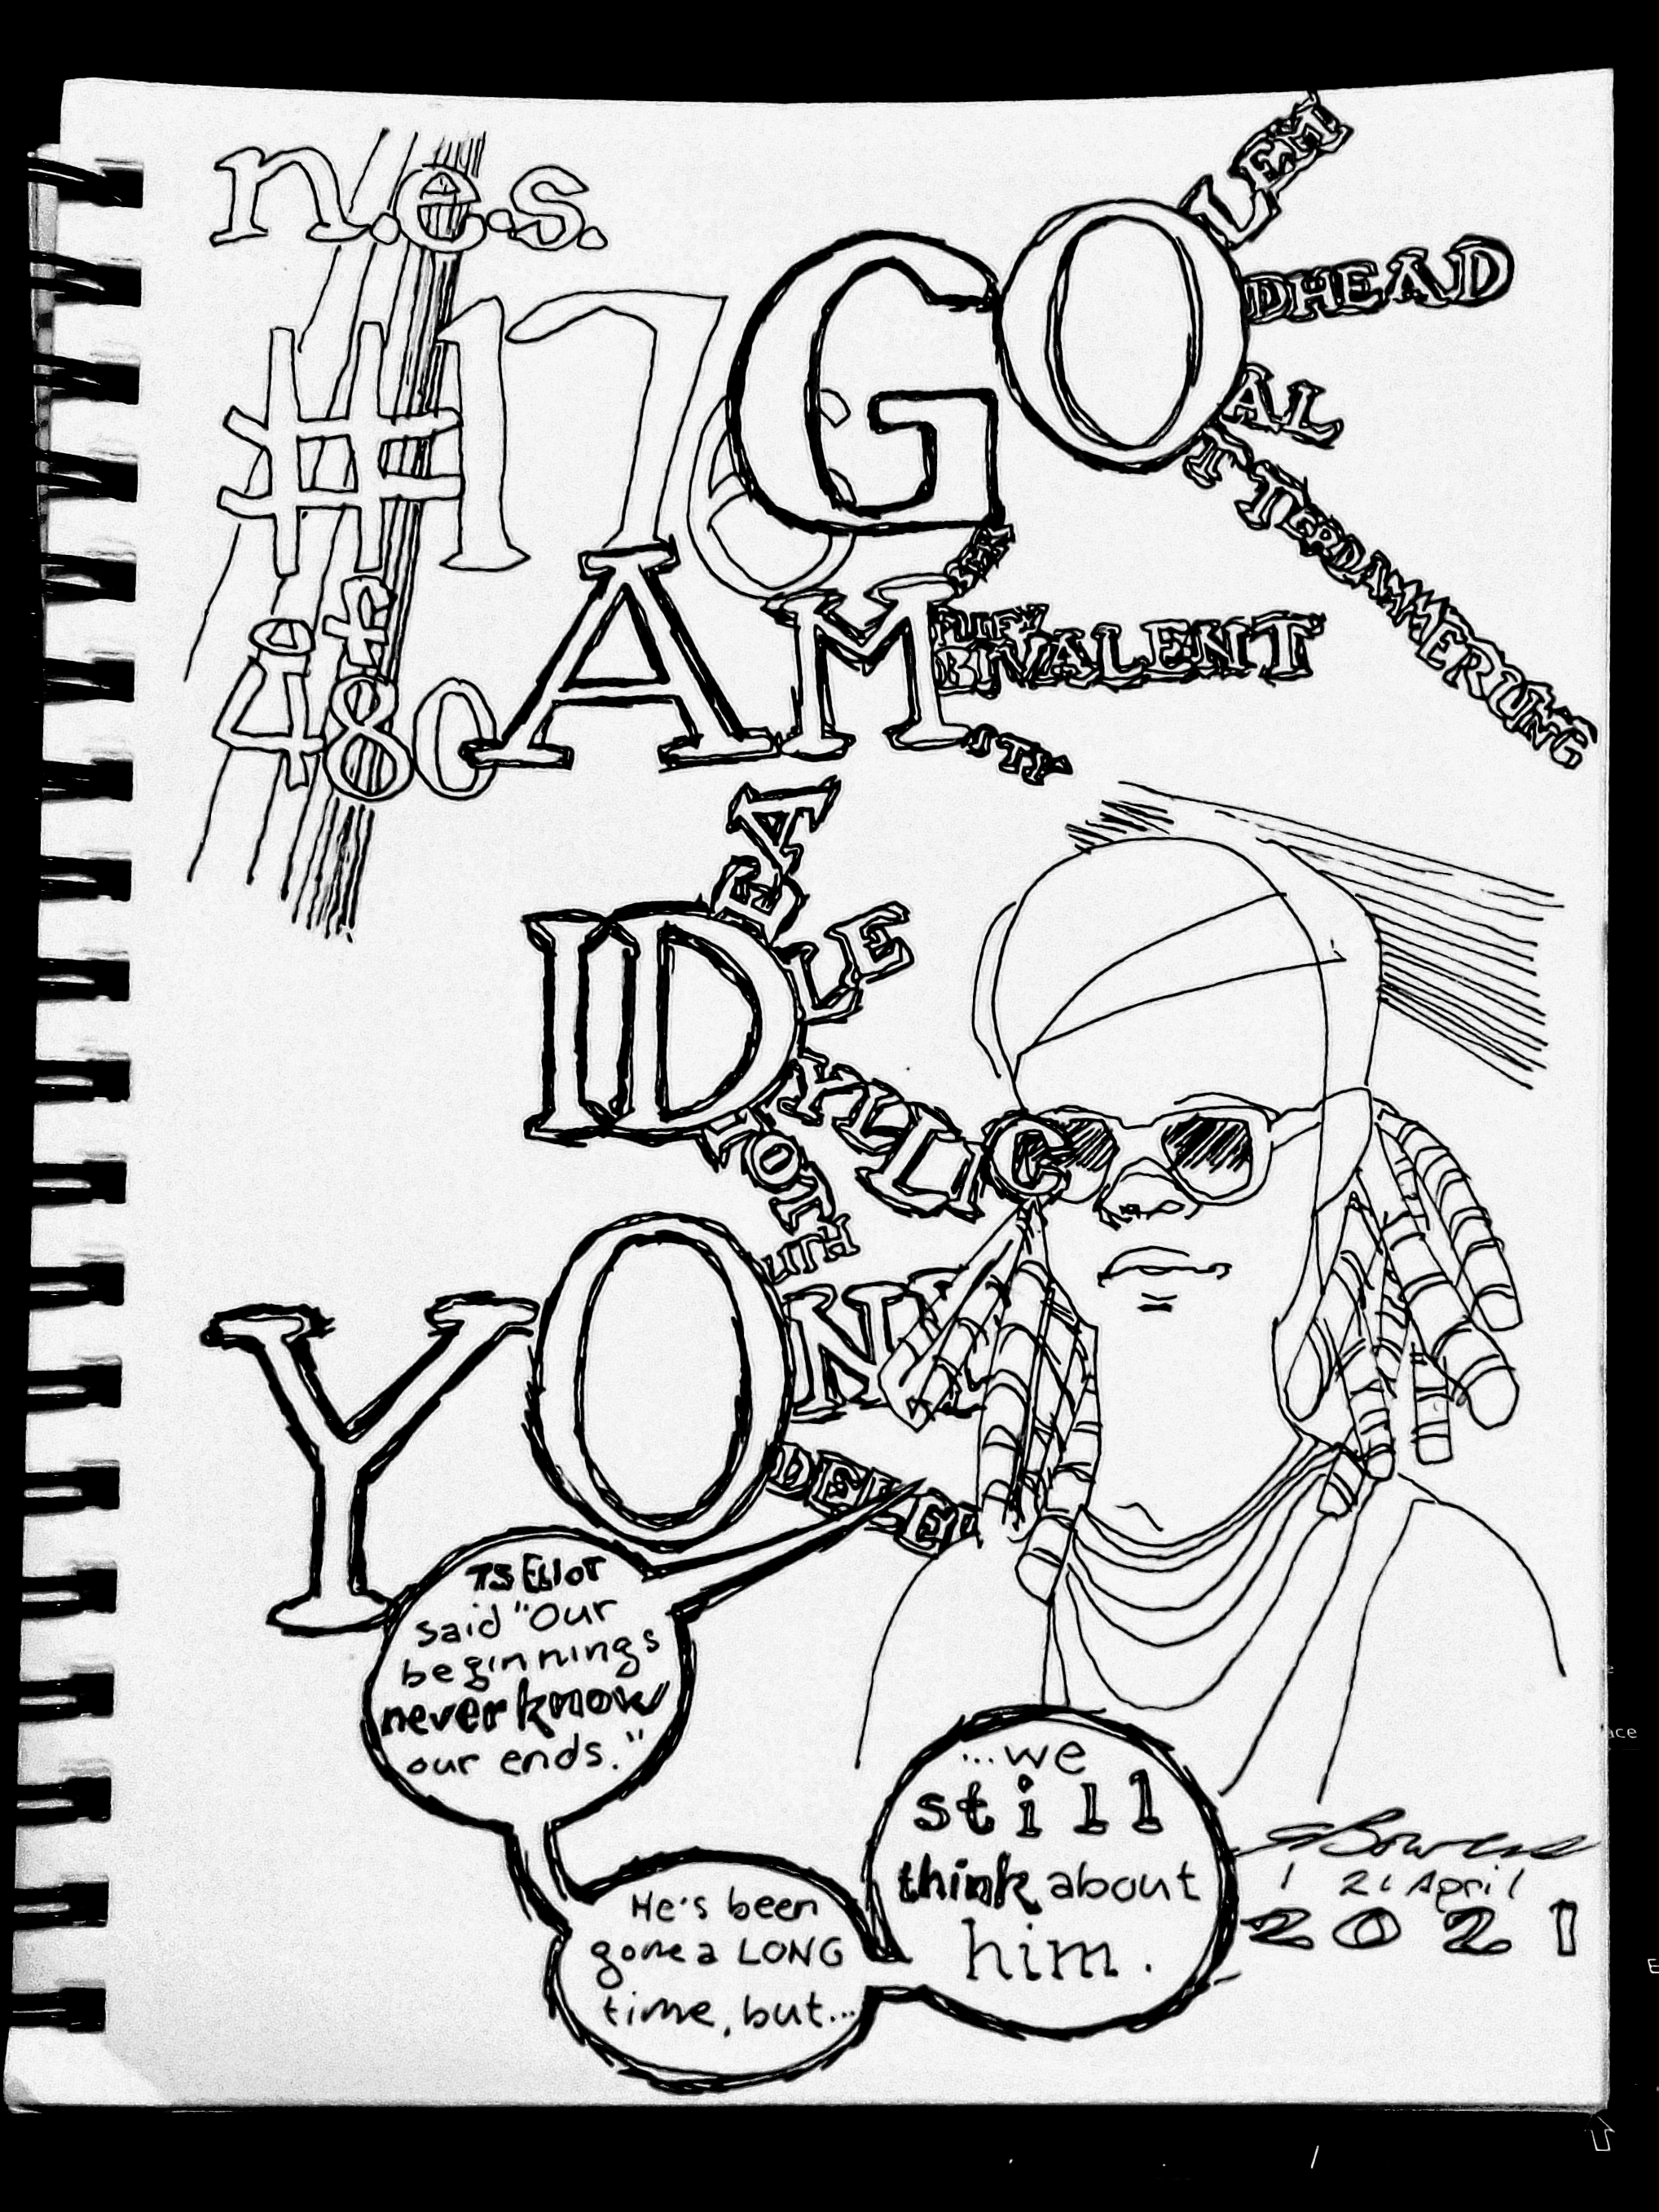 n.e.s.
#176
if
480
GO
LEM
DHEAD
AL
TTERDAMMERUNG
AM
PLIFY
BIVALENT
ITY
ID
EA
LE
YLLIC
IOT
YO
UTH
N
DELER
TS Eliot
said "Our
beginnings
never know
our ends."
He's been
gone a LONG
time, but...
...we
still
think about
him.
21 April
2021